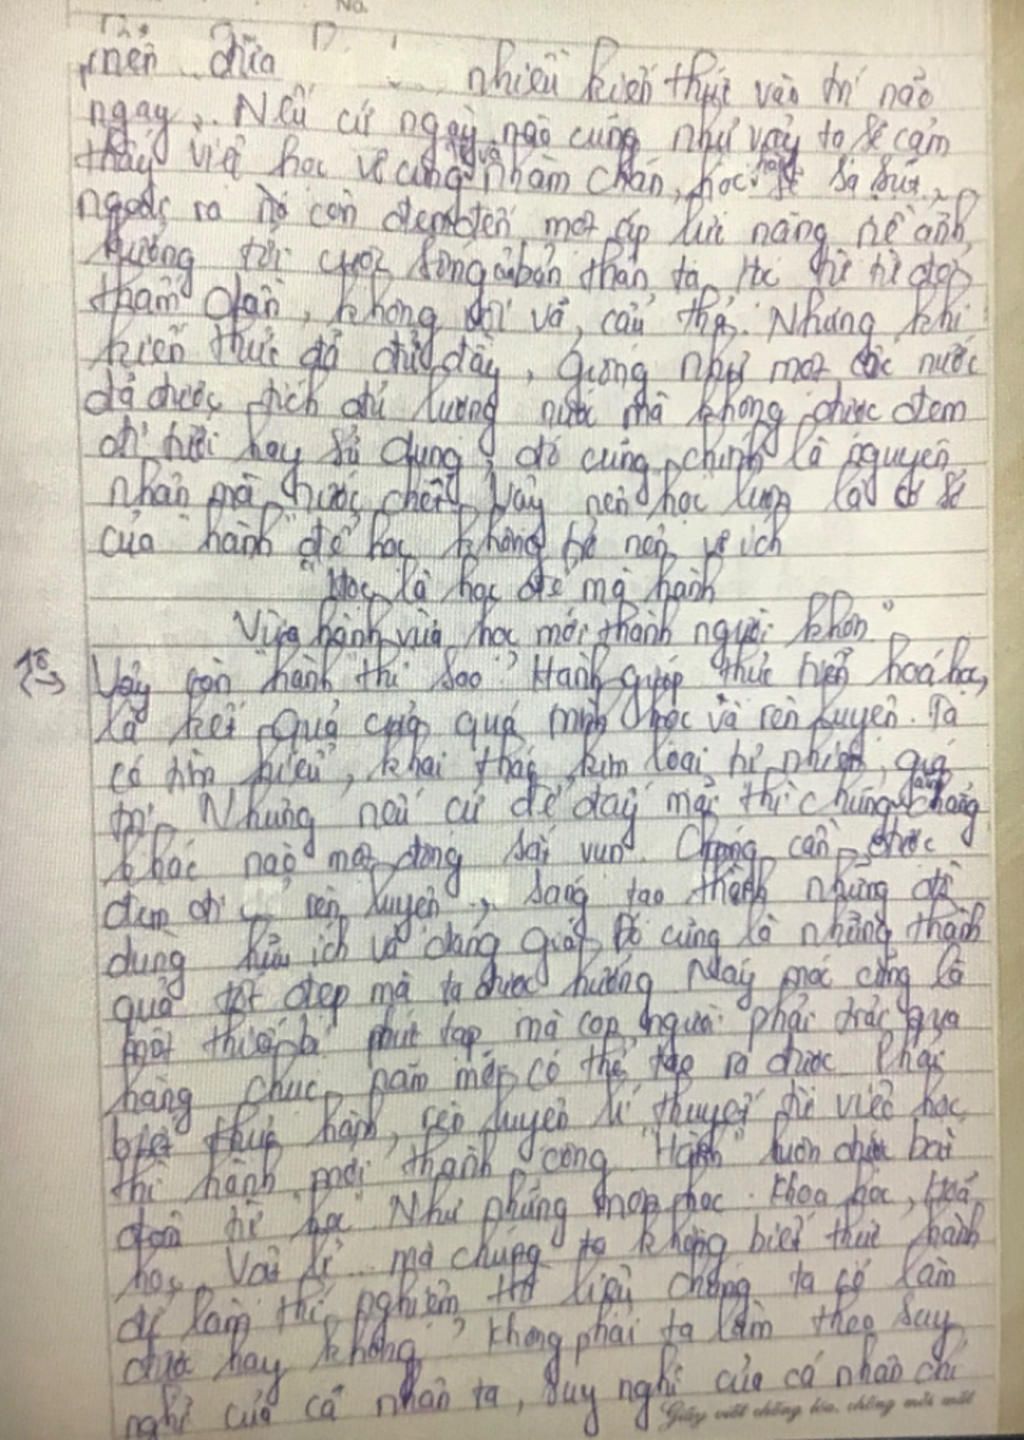 No.
nên đưa nhiều kiến thức vào trí não
ngay, .. Nếu cứ ngày nào cũng như vậy ta sẽ cảm
thấy việc học vô cùng nhàm chán, học sẽ sa sút,
ngoài ra nó còn đem đến một áp lực nặng nề ảnh
hưởng tới cuộc sống của bản thân ta,
không cẩu thả. Nhưng khi
kiến thức đã đủ đầy, giống như một cốc nước
đã được tích đủ lượng nước mà không được đem
đi tưới hay sử dụng, đó cũng chính là nguyên
nhân mà nước Vậy nên học luôn là cơ sở
của "hành" để học không trở nên vô ích
"Học là học để mà hành
Vừa hành vừa học mới thành người khôn"
Vậy còn hành thì sao? Hành giúp thực hiện hoá học,
là kết quả của quá trình học và rèn luyện. Ta
có tìm kiếm, khai thác kim loại tự nhiên, quý
Nhưng nếu cứ để đấy mãi thì chúng chẳng
khác nào một đống sắt vụn. Chúng cần được
đem đi rèn luyện, sáng tạo thành những đồ
dùng hữu ích và đáng giá. Đó cũng là những thành
quả tốt đẹp mà ta được hưởng Máy móc cũng là
một thiết bị phức tạp mà con người phải trải qua
hàng chục năm mới có thể tạo ra được Phải
biết thực hành, rèn luyện lí thuyết từ việc học
thì hành mới thành công "Hành" luôn được
từ "học" Như những môn học: Khoa học, Hoá
học, Vật lí ... mà chúng ta không biết thực hành
để làm thí nghiệm thử liệu chúng ta có làm
được hay không? Không phải ta làm theo suy
nghĩ của cá nhân ta, suy nghĩ của cá nhân chỉ
Giấy viết chống lóa, chống mỏi mắt